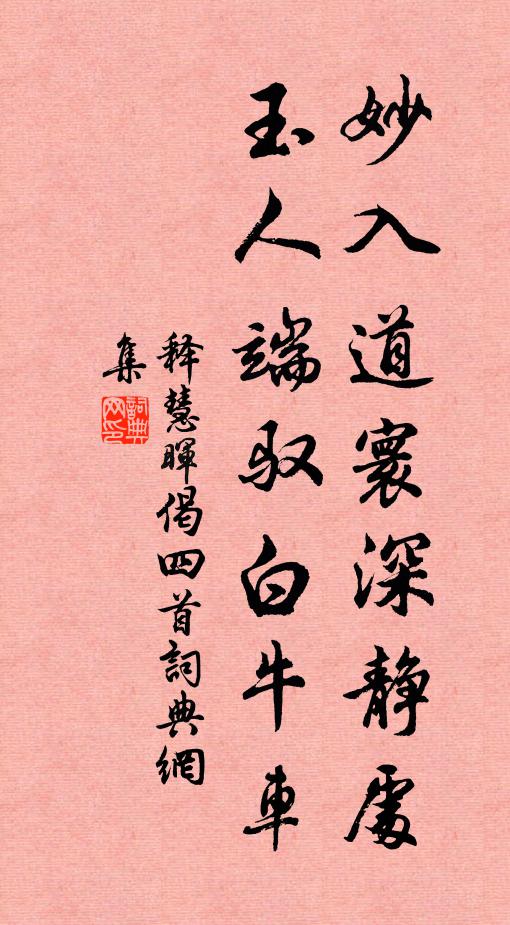 妙入道寰深静處
玉人端驭白牛車
释慧暉偈四首詞典網
集
詞典网印